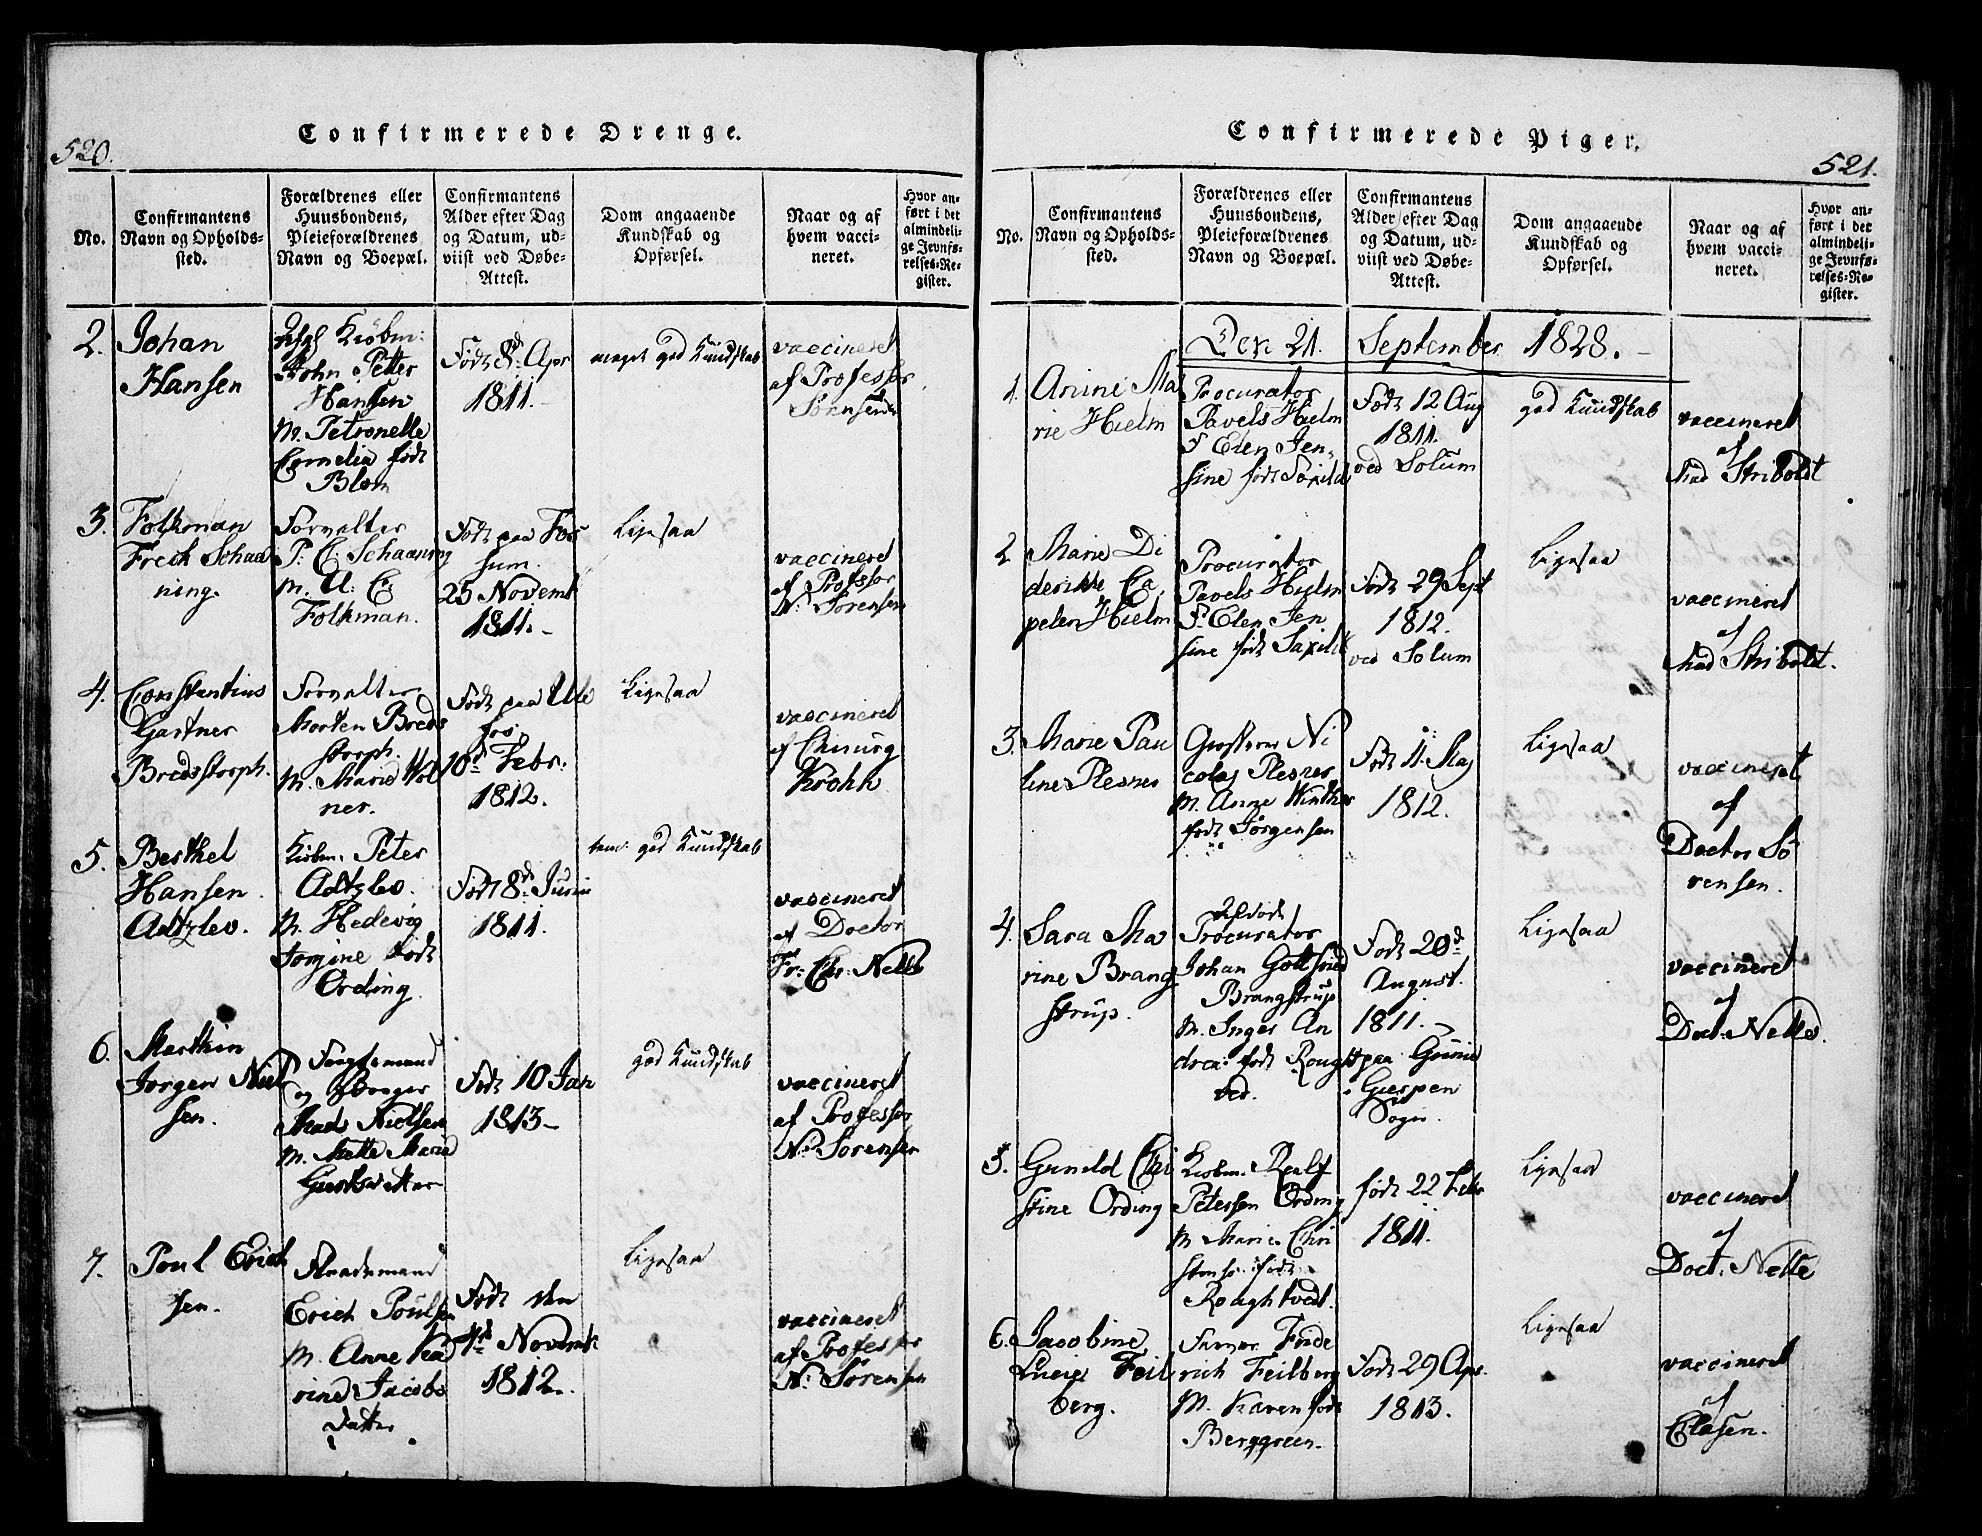 520.
Confirmerede Drenge.
No.
Confirmantens
Navn og Opholds-
sted.
Forældrenes eller
Huusbondens,
Pleieforældrenes
Navn og Boepæl.
Confirmantens
Alder efter Dag
og Datum, ud-
viist ved Døbe-
Attest.
Dom angaaende
Kundskab og
Opførsel.
Naar og af
hvem vacci-
neret.
Hvor an-
ført i det
almindeli-
ge Jevnfø-
relses-Re-
gister.
2.
Johan
Hansen
Kiöbm:
John Petter
Hansen
M. Petronelle
Cornelia födt
Blom
Födt 8de Apr
1811.-
meget god Kundskab
vaccineret
af Professor
Sörensen
3.
Folkman
Fredk Schaa
ning.
Forvalter
P. C. Schaaning
M. U. C.
Folkman.
Födt paa Fos
sum.
25 Novembr
1811.-
Ligesaa
vaccineret
af Professor
N: Sörensen
4.
Constantius
Gartner
Bredsstorph.
Forvalter
Morten Breds
storph.
M. Marie Wol
ner.
Födt paa Ule
fos
10de Febr.
1812.
Ligesaa
vaccineret
af Chirurg
Krohn
5.
Berthel
Hansen
Adtzlev.
Kiöbm. Peter
Adtzlev.
M. Hedevig
Jorgine födt
Ording.
Födt 8de Junii
1811.
tem: god Kundskab
vaccineret
af Doctor
Fr: Chr: Nelle
6.
Marthin
Jörgen Niel
sen.
og Borger
Mads Nielsen
M. Mette Marie
Födt 10 Jan
1813-
god Kundskab
vaccineret
af Professor
N: Sorensen
7.
Poul Erich
sen.
Strandmand
Erich Poulsen
M. Anne Ka
rine Jacobs
datter
Födt den
4de Novembr
1812.
Ligesaa
vaccineret
af Professor
N: Sörensen
Confirmerede Piger.
521.
No.
Confirmantens
Navn og Opholds-
sted.
Forældrenes eller
Huusbondens,
Pleieforældrenes
Navn og Boepæl.
Confirmantens
Alder efter Dag
og Datum, ud-
viist ved Døbe-
Attest.
Dom angaaende
Kundskab og
Opførsel.
Naar og af
hvem vacci-
neret.
Hvor an-
ført i det
almindeli-
ge Jevnfø-
relses-Re-
gister.
Den 21. September 1828.-
1.
Anine Ma
rie Hielm
Procurator
Pavels Hielm
Elen Jen-
sine födt Saxild
Födt 12 Aug
1811.
ved Solum
god Kundskab
vaccineret
af
Mad Stribolt
2
Marie Di
derikke Ca
pelen Hielm
Procurator
Pavels Hielm
Elen Jen
sine födt Saxild
Födt 29 Sept
1812.
ved Solum
Ligesaa
vaccineret
af
Mad Stribolt.
3.
Marie Pau
line Plesner
Ni
colaj Plesner
M. Anne Winther
födt Jörgensen
Födt 11. Maj
1812.
Ligesaa
vaccineret
af
Doctor Sö
rensen.
4.
Sara Ma
rine Brang
strup.
Procurator
Johan Gottfried
Brangstrup
M. Inger An
drea födt Rought
ved.
Födt 20de
August.
1811.-
paa Grinie
i Gierpen
Sogn.
Ligesaa
vaccineret
af
Doct. Nelle.
5.
Guneld Chri
stine Ording
Kiöbm. Roalf
Petersen Ording
M Marie Chri
stense födt
Roughtvedt.
födt 22 Febr
1811.
Ligesaa
vaccineret
af
Doct. Nelle
6.
Jacobine
Lucie Feil
berg.
Farver Fride
rich Feilberg
M. Karen födt
Berggreen.
Födt 29 Apr.
1813.
Ligesaa
vaccineret
af
Clasen.